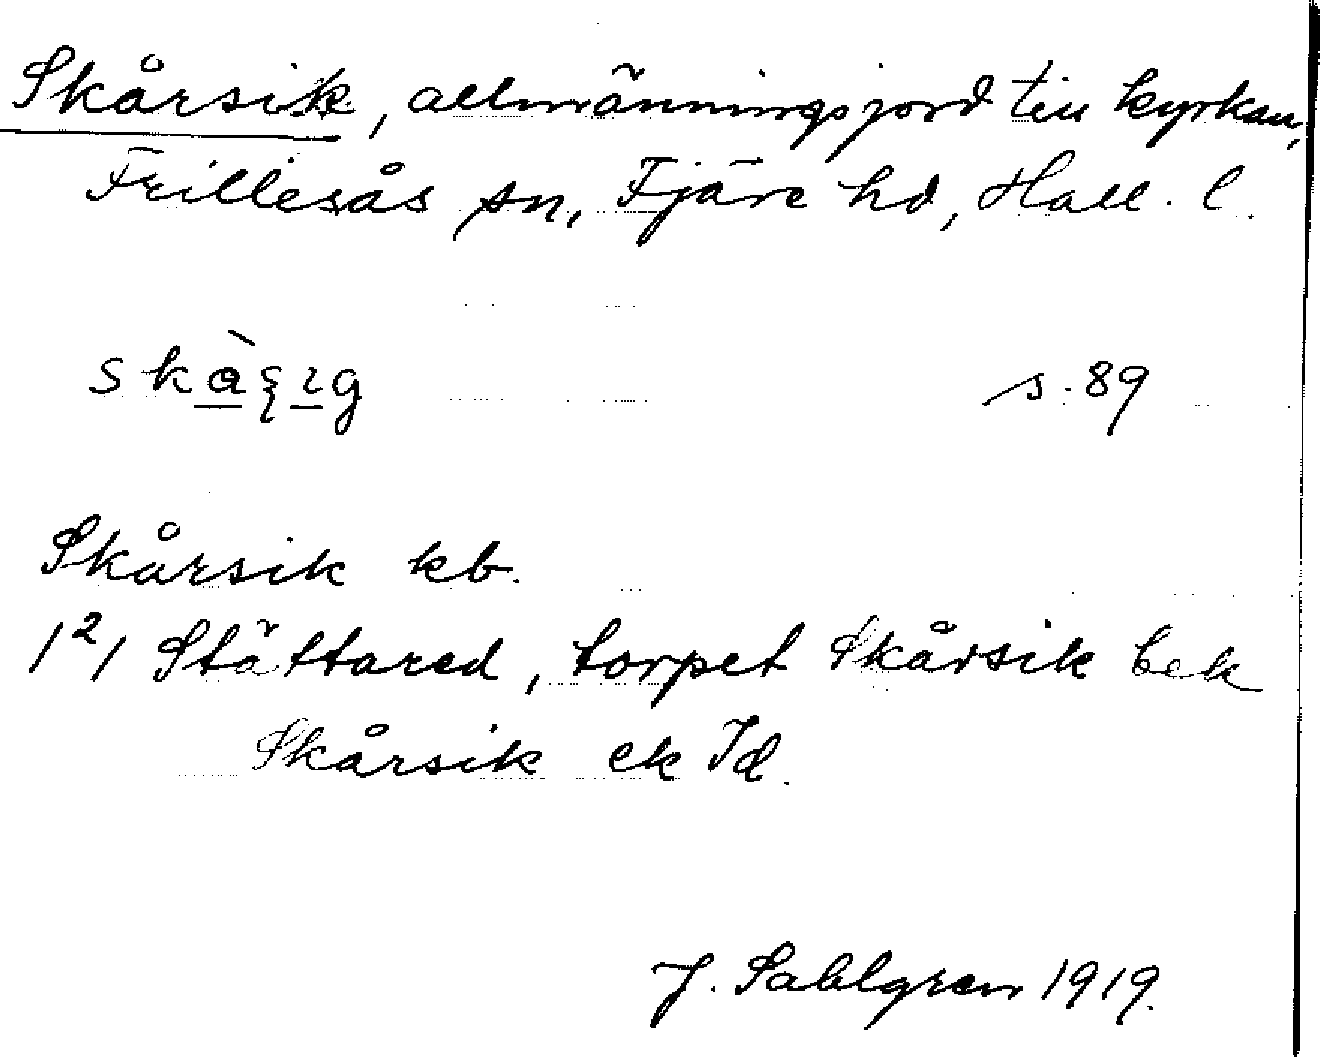 Skårsik, allmänningsjord till kyrkan,
Frillesås sn, Fjäre hd, Hall. l.
s. 89
Skårsik kb.
1²/1 Stättared, torpet Skårsik bek
Skårsik ek Id.
J. Sahlgren 1919.